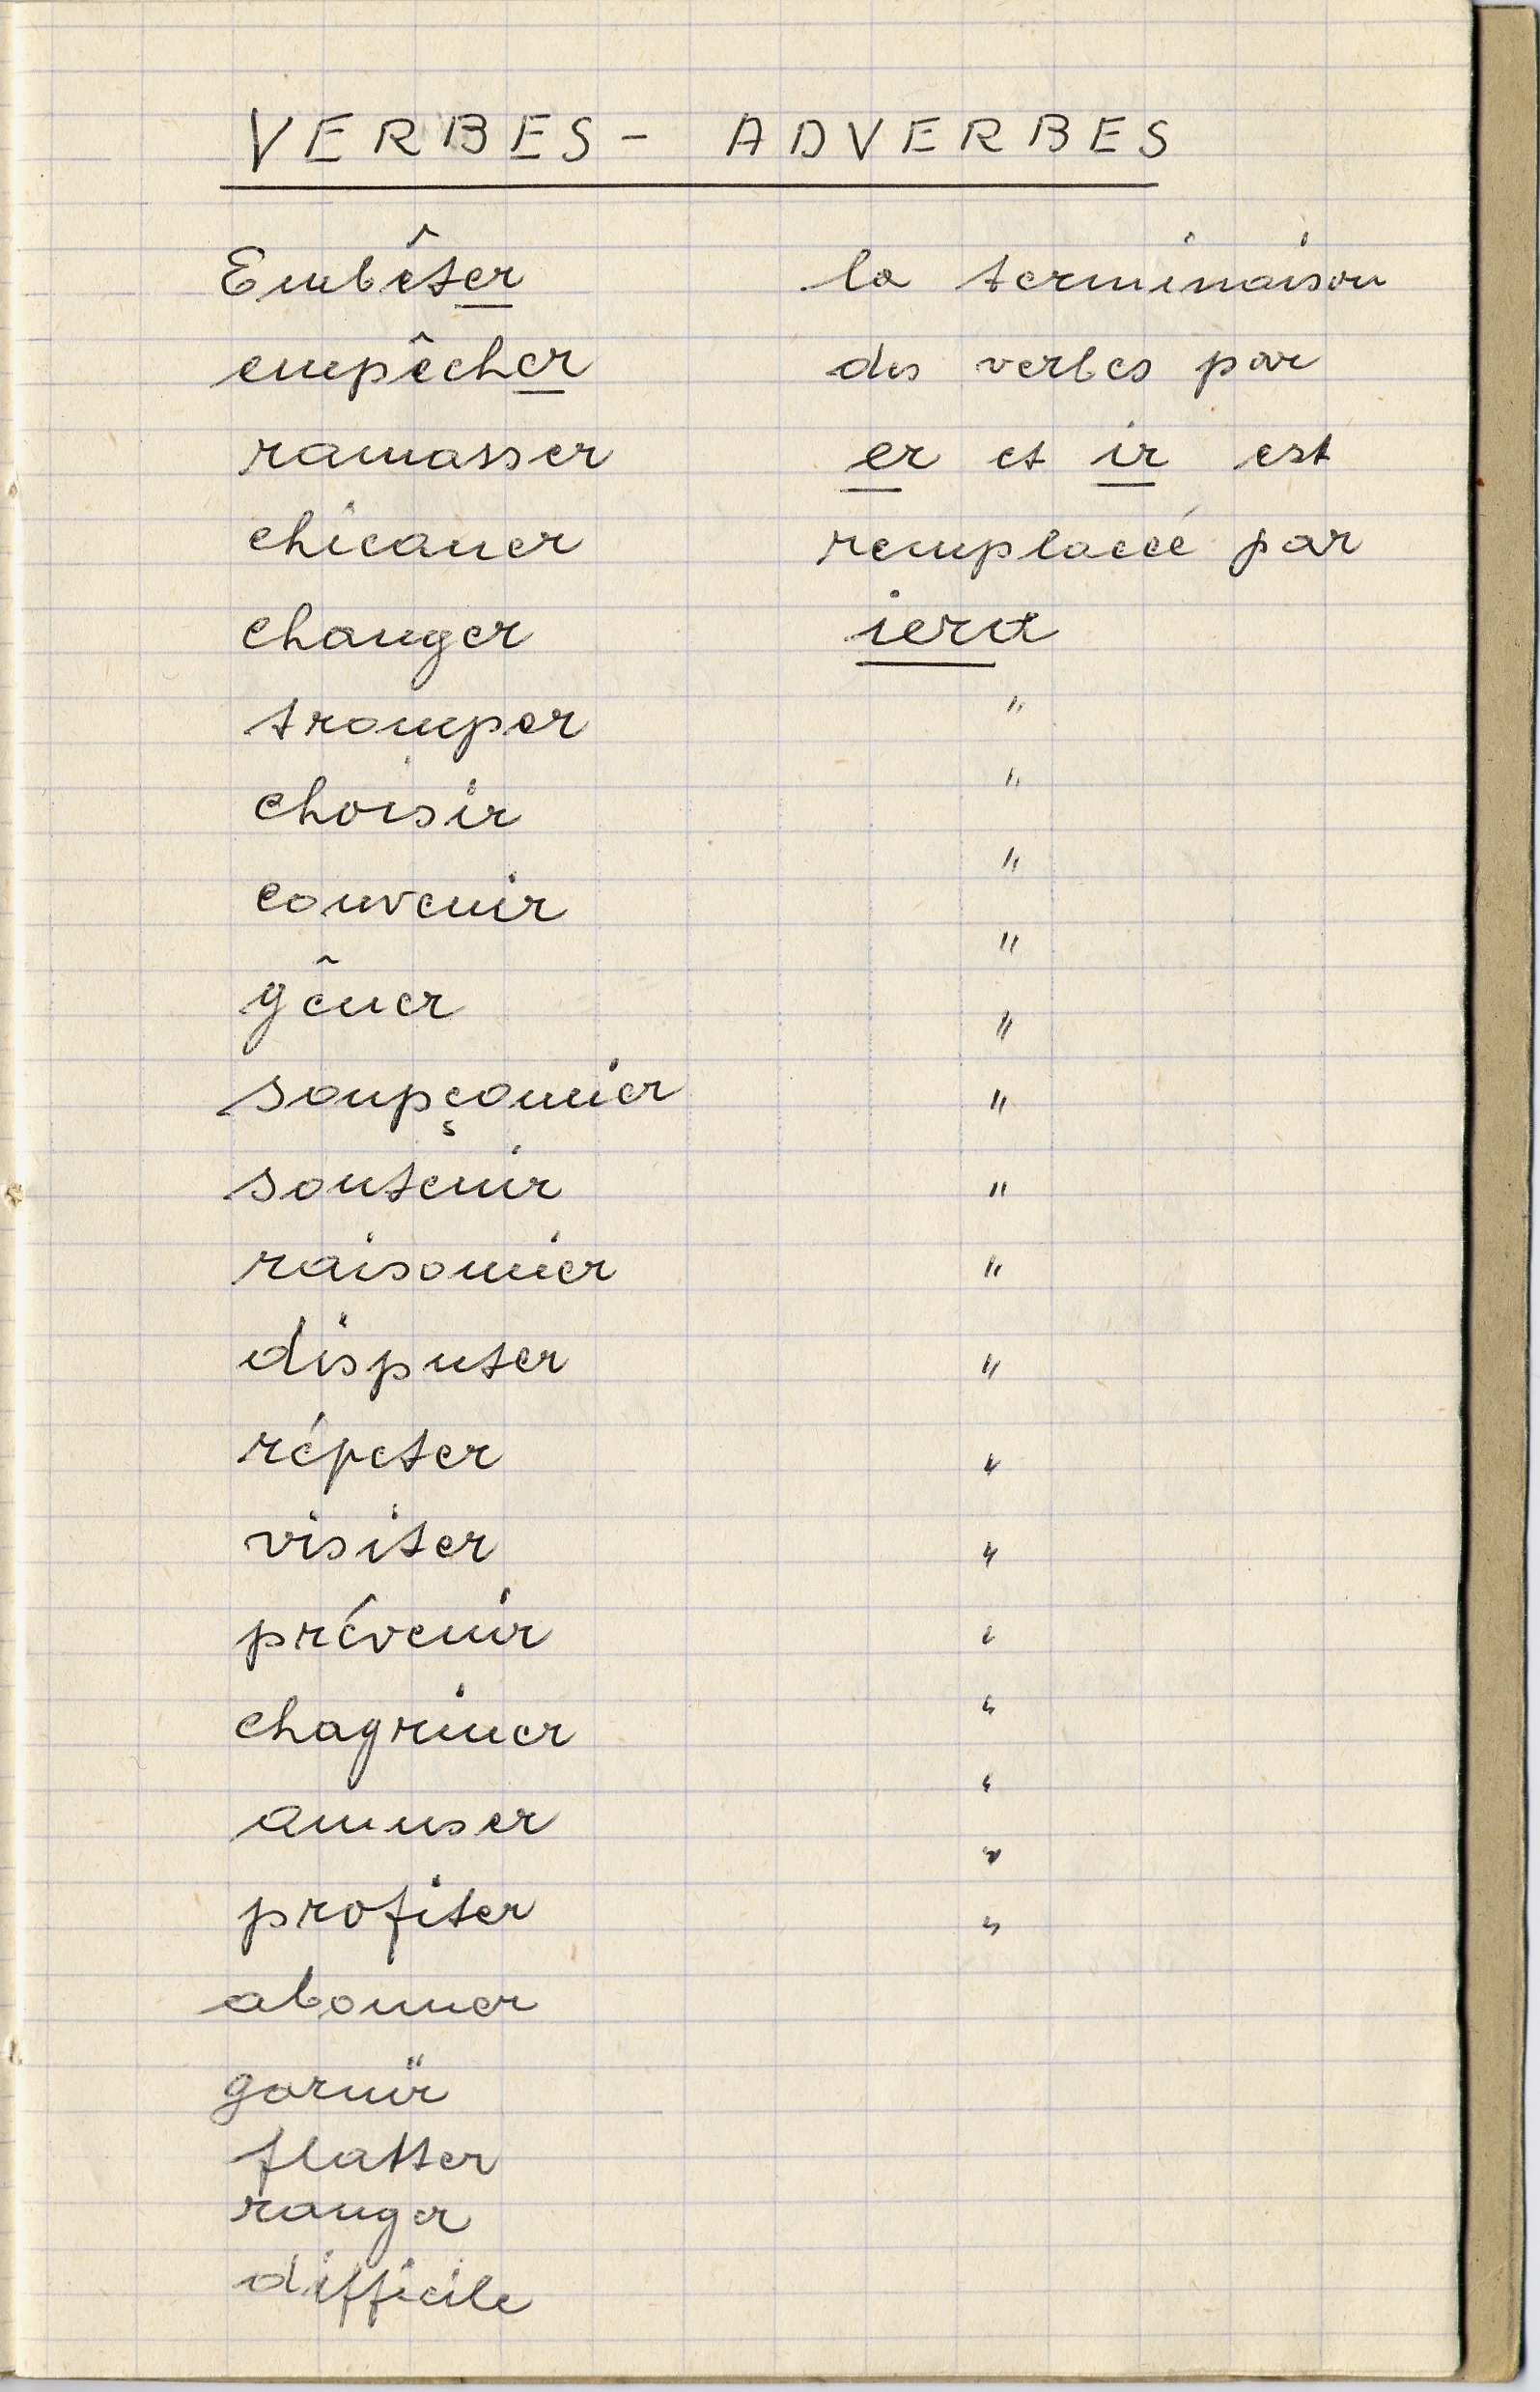 VERBES - ADVERBES
Embêter la terminaison
empêcher des verbes par
ramasser er et ir est
chicaner remplaceé par
changer iert
tromper "
choisir "
convenir "
gêner "
soupçonnier "
soutenir "
raisonnier "
disputer "
répeter "
visiter "
prévenir "
chagriner "
amuser "
profiter "
abonner
garnir
flatter
ranger
difficile